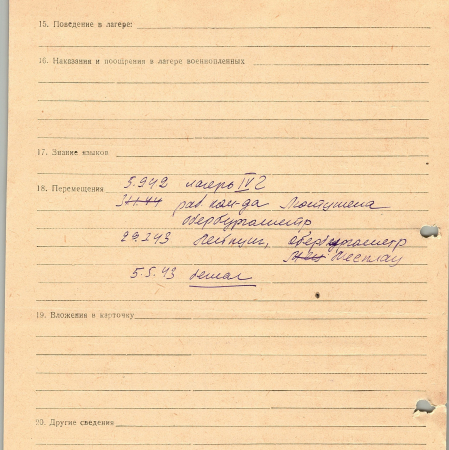 15. Поведение в лагере:
16. Наказания и поощрения в лагере военнопленных
17. Знание языков
18. Перемещения 5.9.42 лагерь IV G
раб ком-да
обербургомистр
29.1.43 Лейпциг, обербургомистр
5.5.43 бежал
19. Вложения в карточку
20. Другие сведения